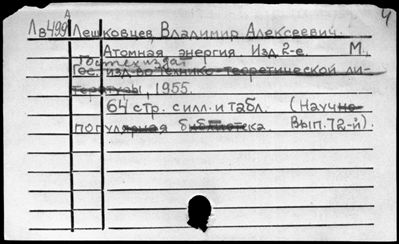 А 4
Лв499 Лешковцев, Владимир Алексеевич.
Атомная энергия. Изд. 2-е. М.,
Гостехиздат
Гос. изд-во технико-теоретической ли-
тературы, 1955.
64 стр. с илл. и табл. (Научно-
популярная библиотека. Вып. 72-й).